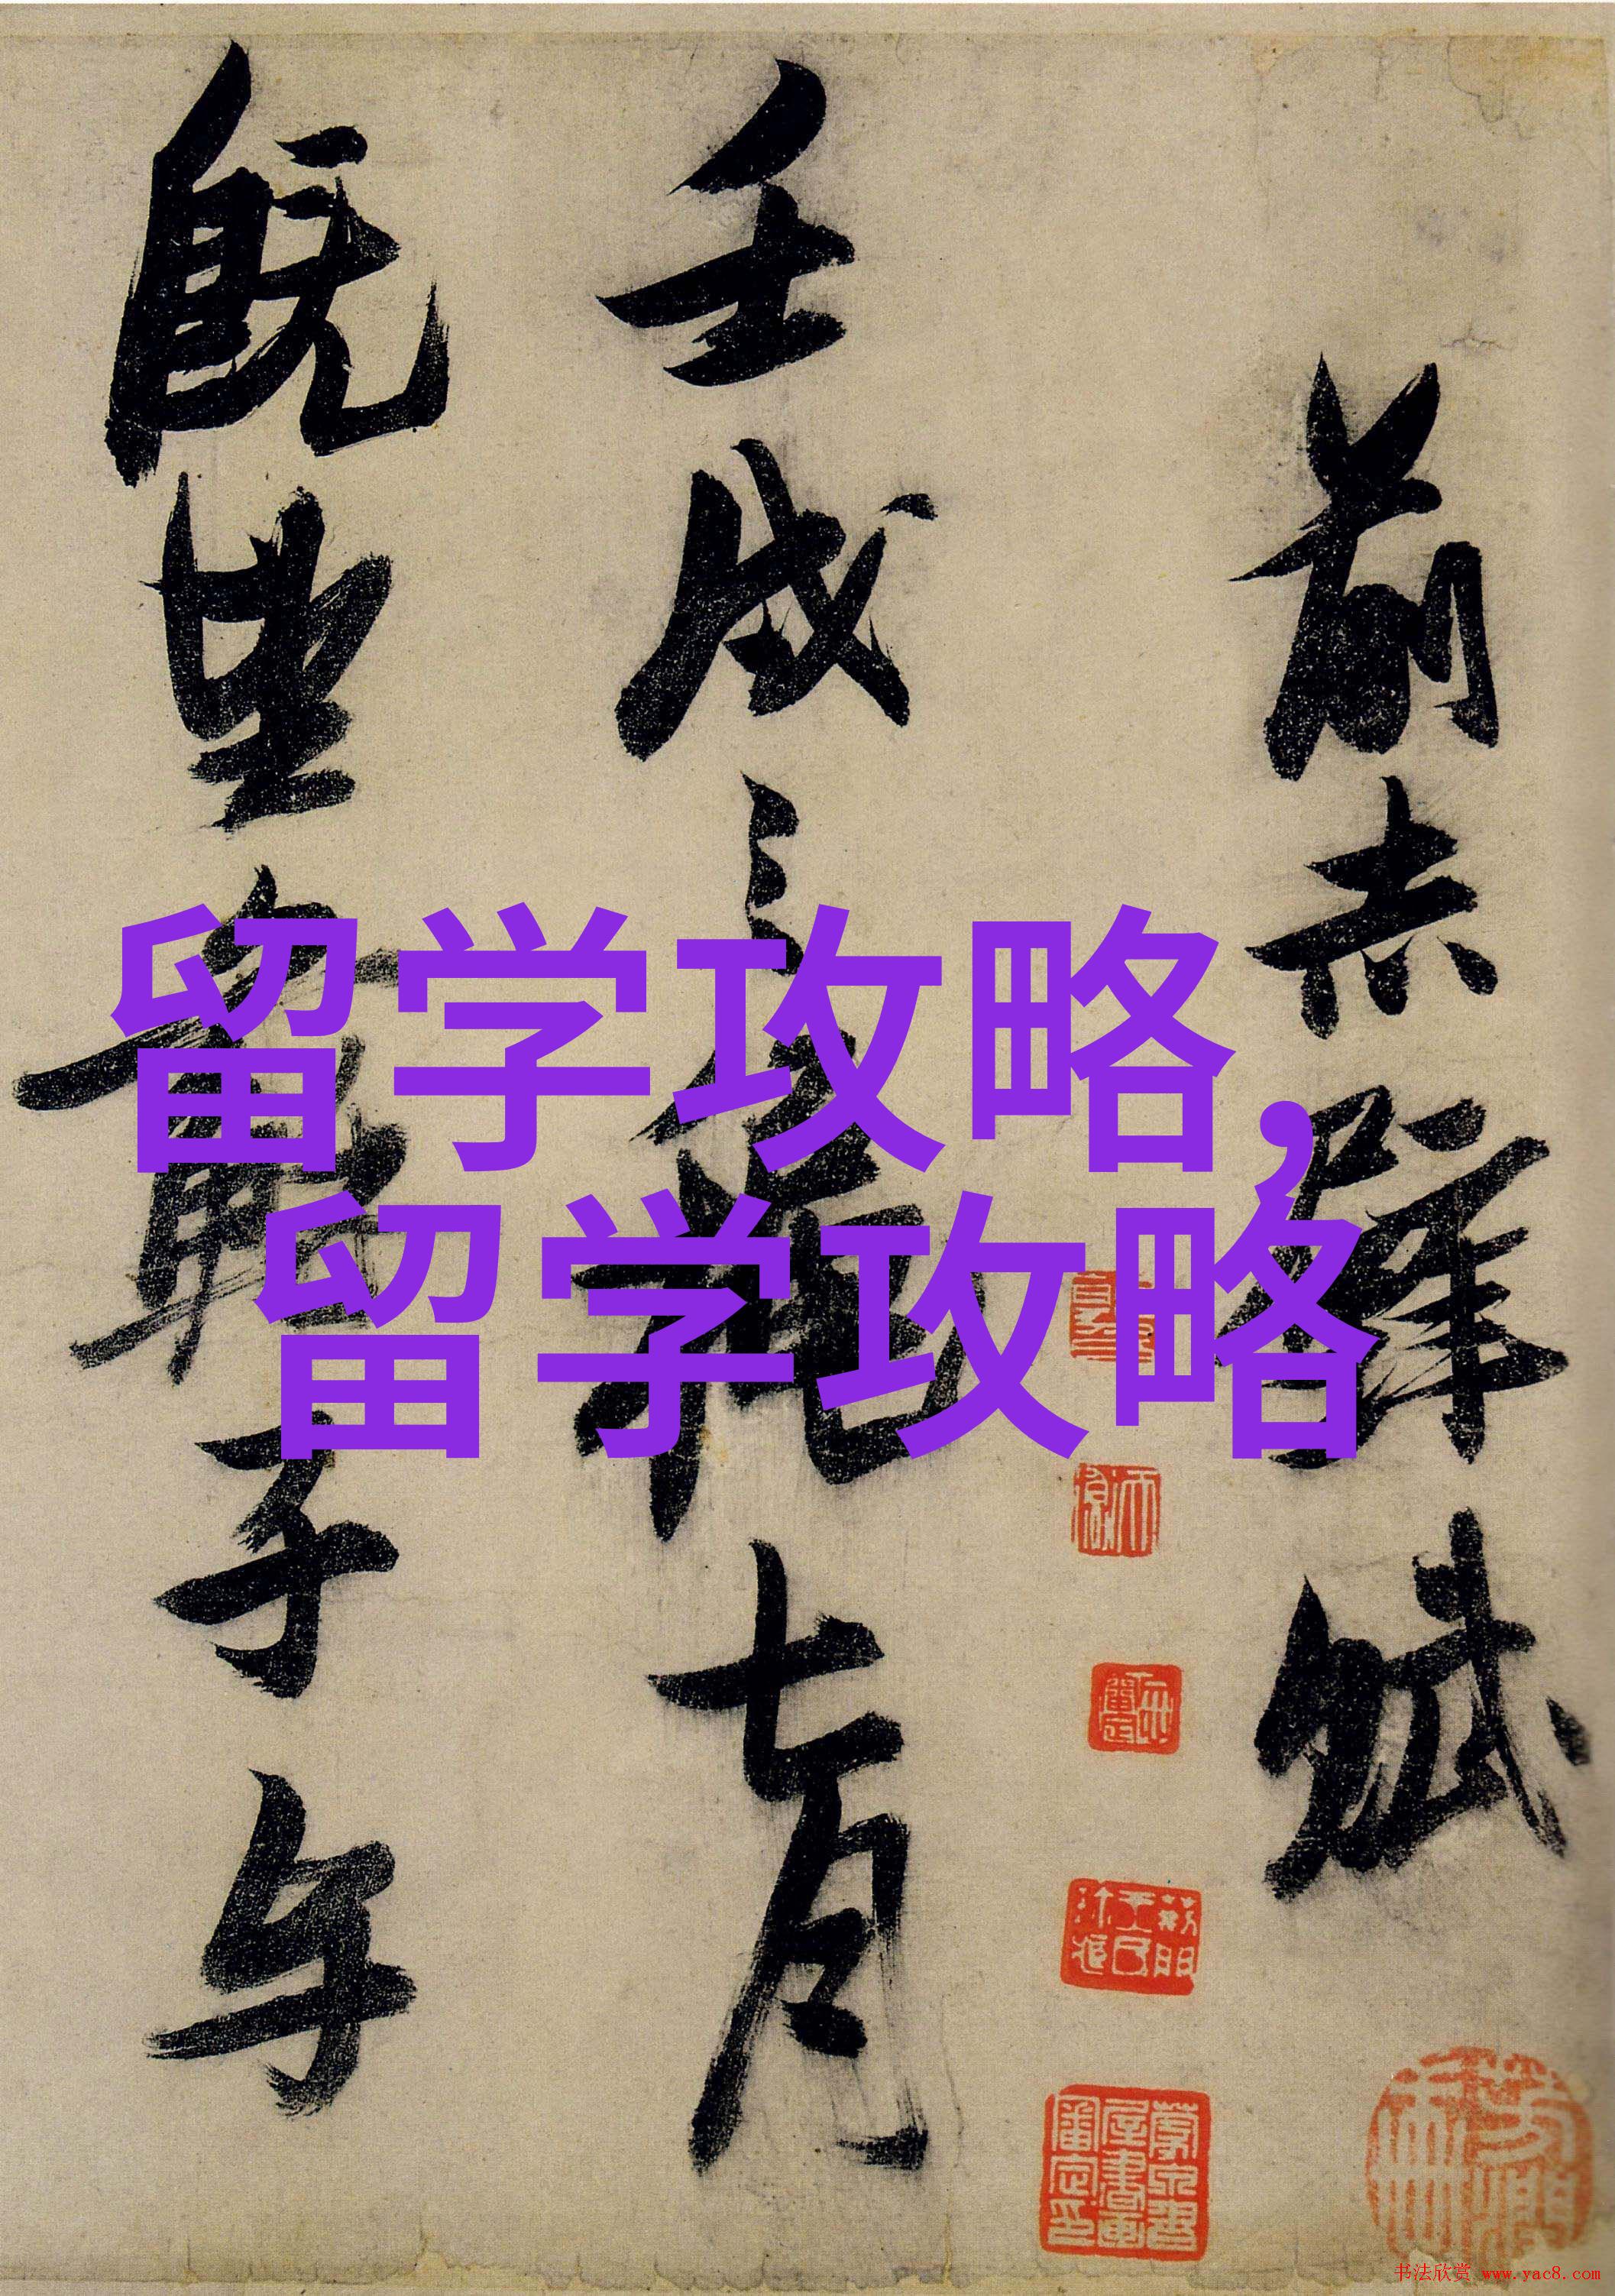 留学攻略,
留学攻略
前赤壁賦
壬戌之七月
既望子与
书法欣赏 www.yac8.com